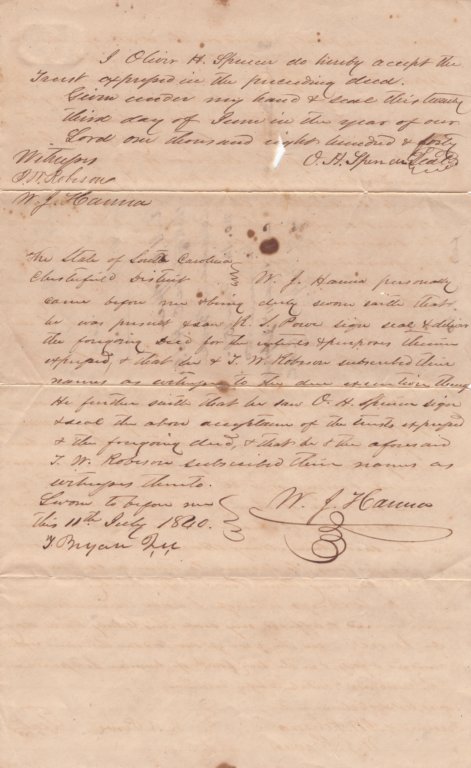 I Oliver H. Spencer do hereby accept the
Trust expressed in the preceeding deed.
Given under my hand & seal this twenty
third day of June in the year of our
Lord one thousand eight hundred & forty
Witnesses O. H. Spencer Seal
T. W. Robeson
W. J. Hanna
The State of South Carolina
Chesterfield District W. J. Hanna personally
came before me & being duly sworn saith that
he was present & saw R. S. Powe sign seal & deliver
the foregoing deed for the intents & purposes therein
expressed, & that he & T. W. Robeson subscribed their
names as witnesses to the due execution thereof
He further saith that he saw O. H. Spencer sign
& seal the above acceptance of the trusts expressed
& the foregoing deed, & that he & the aforesaid
T. W. Robeson subscribed their names as
witnesses thereto.
Sworn to before me
this 11th July 1840. W. J. Hanna
T Bryan